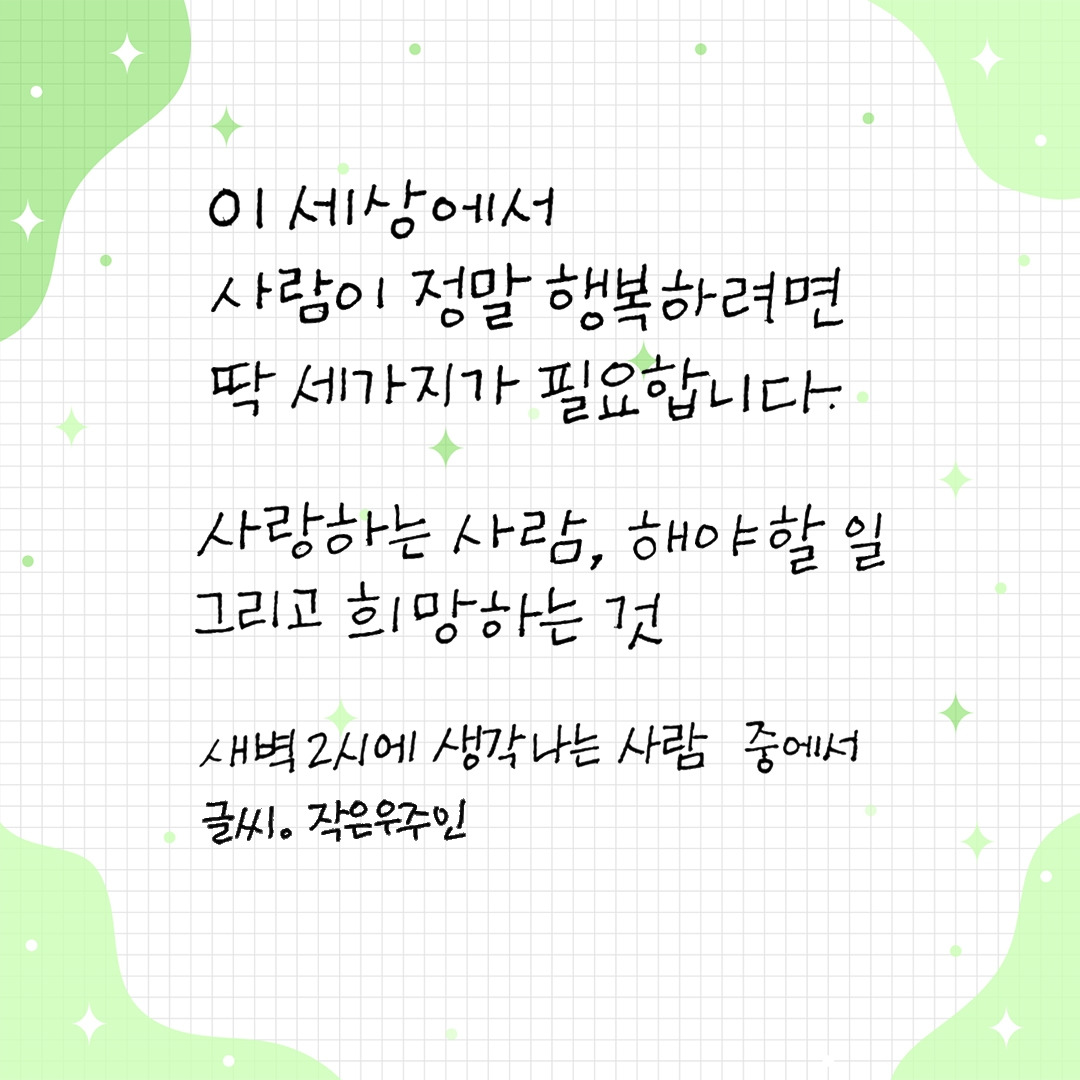 이 세상에서
사람이 정말 행복하려면
딱 세가지가 필요합니다.
사랑하는 사람, 해야할 일
그리고 희망하는 것
새벽 2시에 생각나는 사람 중에서
글씨. 작은우주인